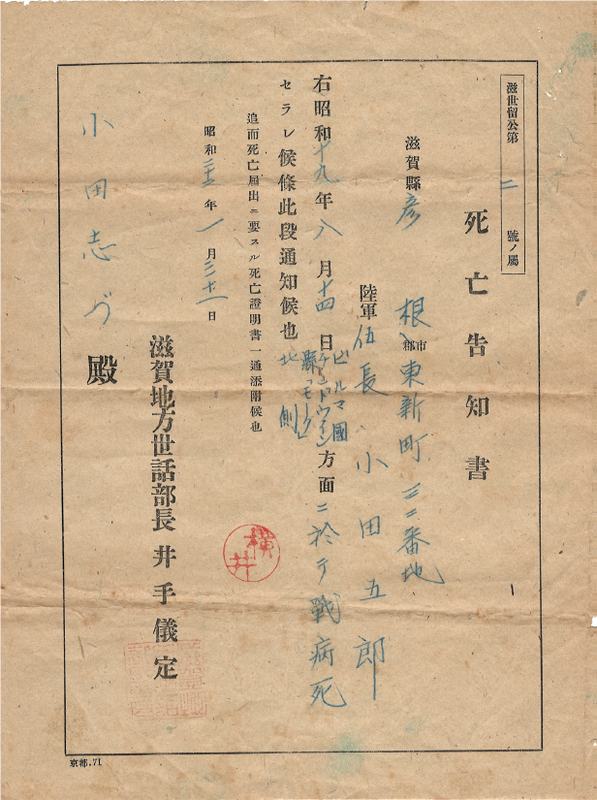 滋世留公第 二 號ノ屬
死亡告知書
滋賀縣 彦根 市郡 東新町 三二番地
陸軍 伍長 小田五郎
右昭和 十九 年 八 月 十四 日 ビルマ國 縣 北側 方面 ニ於テ戰病死
セラレ候條此段通知候也
追而死亡届出ニ要スル死亡證明書一通添附候也
昭和 年 一 月 三十一 日
滋賀地方世話部長 井手儀定
小田志づ 殿
横井
京都.71